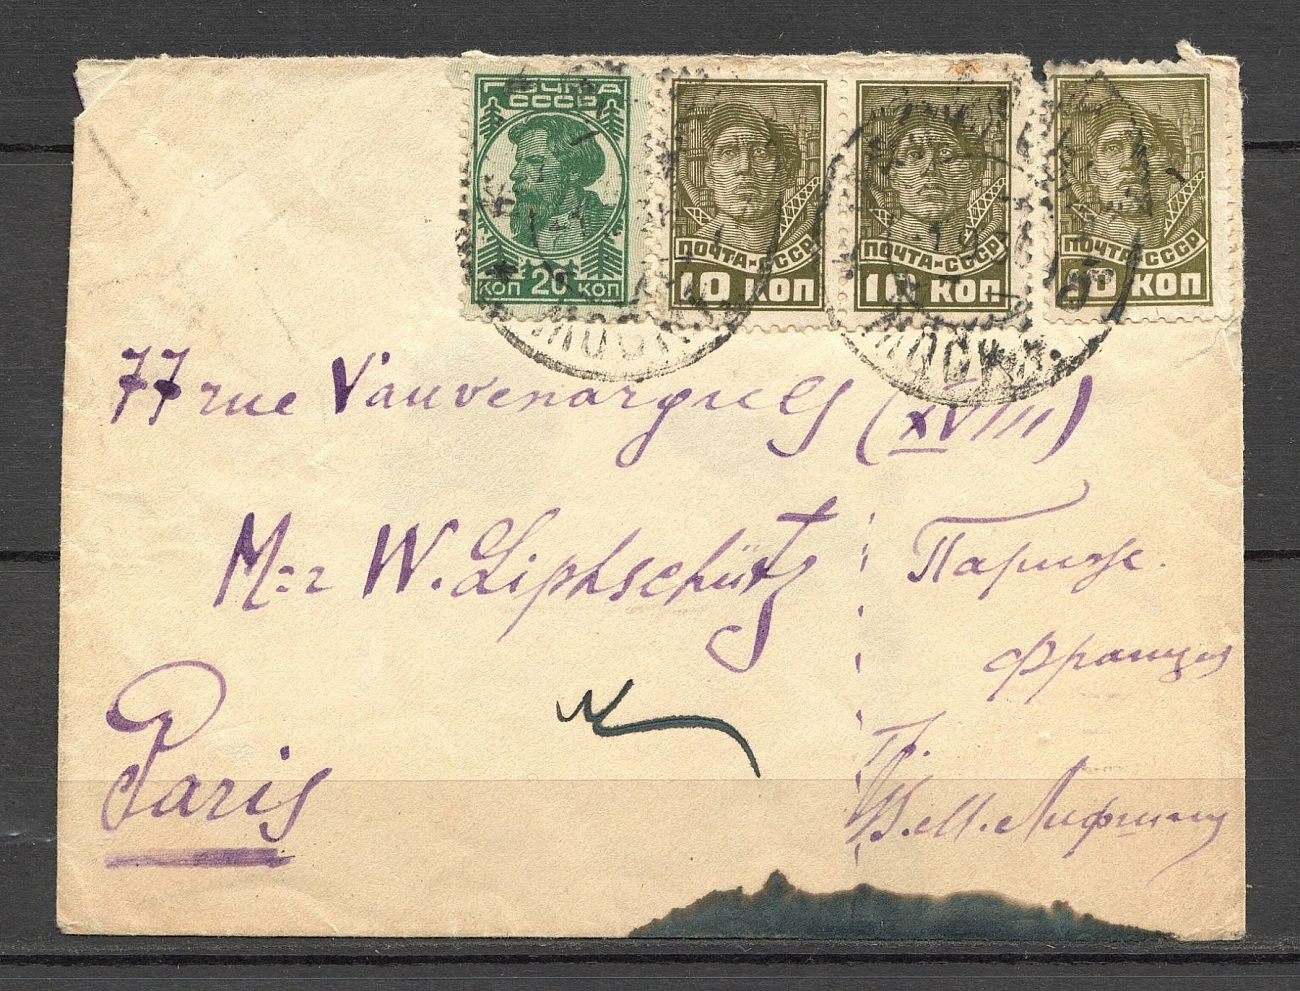 ПОЧТА
СССР
20
КОП КОП
ПОЧТА-СССР
10 КОП
ПОЧТА-СССР
10 КОП
ПОЧТА-СССР
10 КОП
МОСКВА
МОСКВА
77 rue Vauvenargues (XVIII)
M=r W. Liphschütz
Париж.
Франция
Paris
Гр.
В. М. Лифшиц